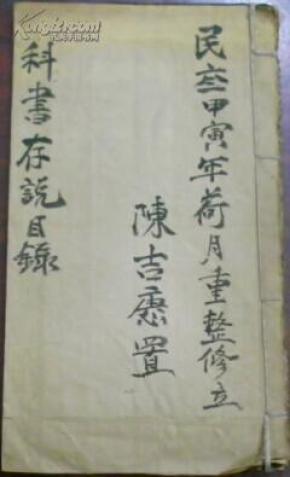 民叁甲寅年荷月重整修立
陳吉應置
科書存說目錄